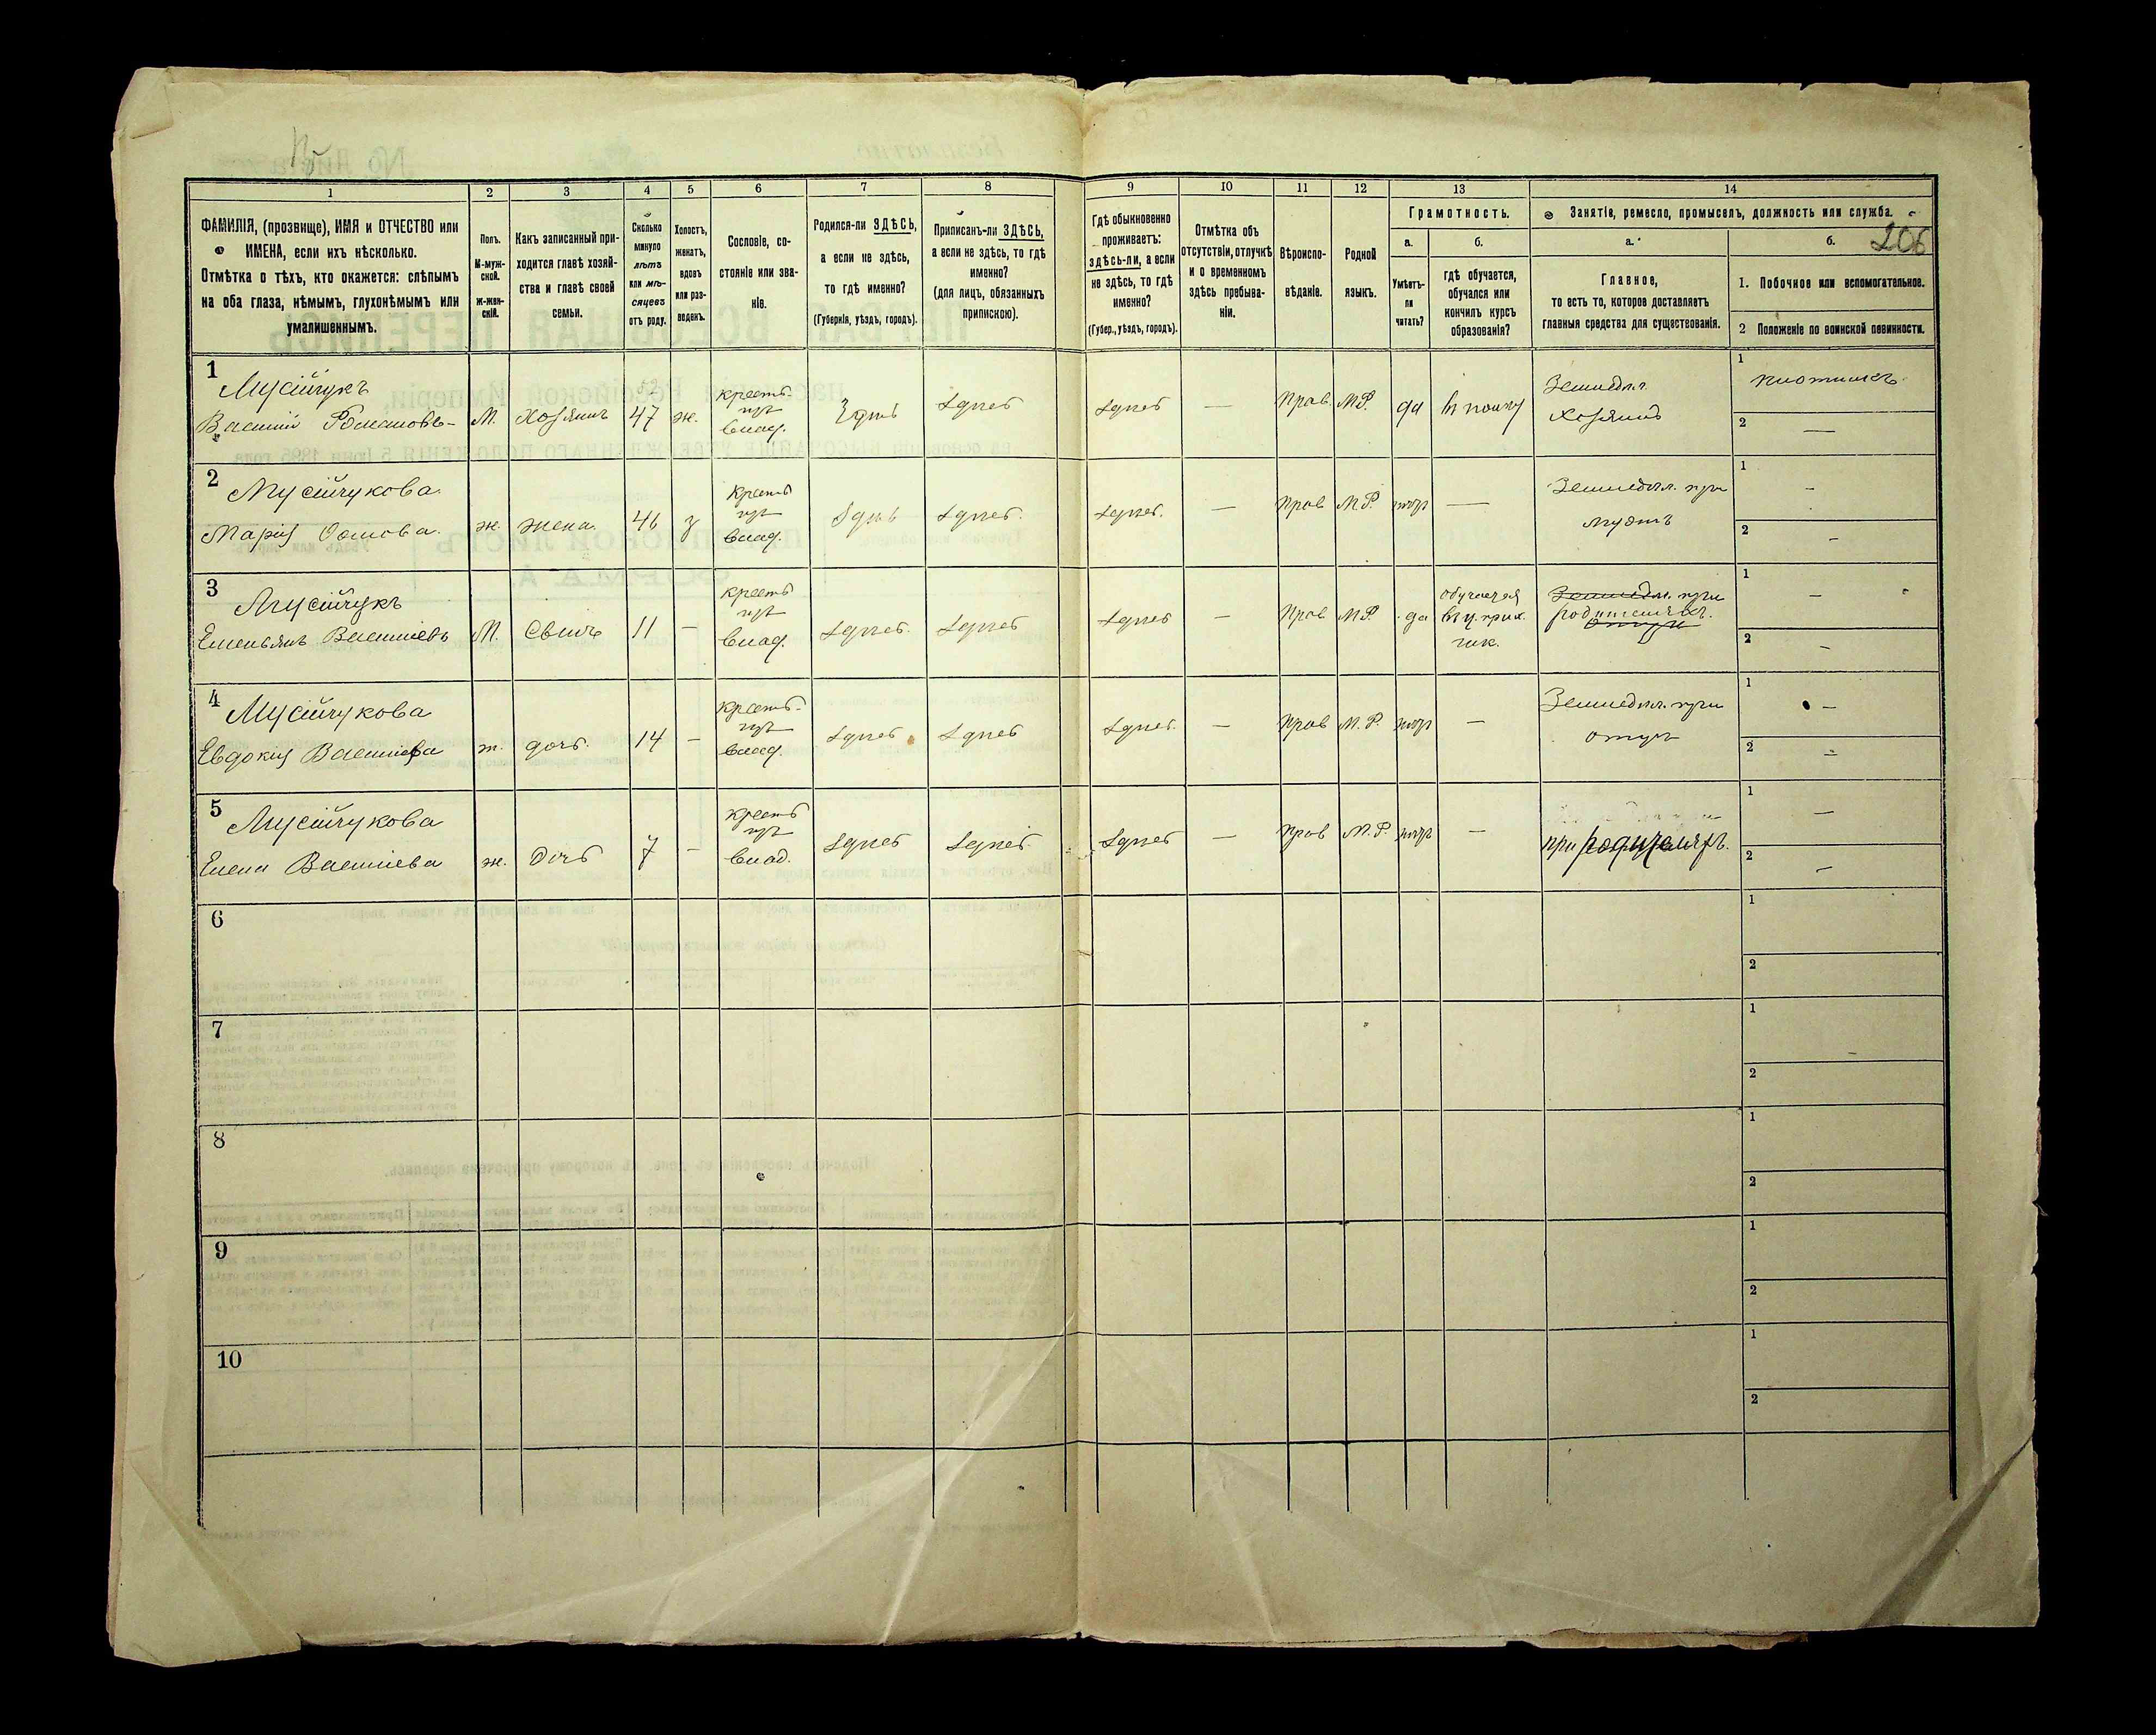 206
1
2
3
4
5
6
7
8
9
10
11
12
13
14
ФАМИЛІЯ, (прозвище), ИМЯ и ОТЧЕСТВО или
ИМЕНА, если ихъ нѣсколько.
Отмѣтка о тѣхъ, кто окажется: слѣпымъ
на оба глаза, нѣмымъ, глухонѣмымъ или
умалишеннымъ.
Полъ.
М-муж-
ской.
Ж-жен-
скій.
Какъ записанный при-
ходится главѣ хозяй-
ства и главѣ своей
семьи.
Сколько
минуло
лѣтъ
или мѣ-
сяцевъ
отъ роду.
Холостъ,
женатъ,
вдовъ
или раз-
веденъ.
Сословіе, со-
стояніе или зва-
ніе.
Родился-ли ЗДѢСЬ,
а если не здѣсь,
то гдѣ именно?
(Губернія, уѣздъ, городъ).
Приписанъ-ли ЗДѢСЬ,
а если не здѣсь, то гдѣ
именно?
(для лицъ, обязанныхъ
припискою).
Гдѣ обыкновенно
проживаетъ:
здѣсь-ли, а если
не здѣсь, то гдѣ
именно?
(Губер., уѣздъ, городъ).
Отмѣтка объ
отсутствіи, отлучкѣ
и о временномъ
здѣсь пребыва-
ніи.
Вѣроиспо-
вѣданіе.
Родной
языкъ.
Грамотность.
а.
Умѣетъ-
ли
читать?
б.
гдѣ обучается,
обучался или
кончилъ курсъ
образованія?
Занятіе, ремесло, промыселъ, должность или служба.
а.
Главное,
то есть то, которое доставляетъ
главныя средства для существованія.
б.
1. Побочное или вспомогательное.
2 Положеніе по воинской повинности.
1
Мусійчукъ
Василий Романовъ
М.
хозяинъ
47
ж.
крестъ.
влад.
здѣсь
здѣсь
здѣсь
—
Прав
М.Р.
да
Земледѣл.
Хозяинъ
1
плотникъ
2 —
2
Мусійчукова
Марія
ж.
жена
46
з
крестъ
влад.
здѣсь
здѣсь
здѣсь
—
Прав
М.Р.
нѣтъ
—
Земледѣл. при
мужѣ
1 —
2 —
3
Мусійчукъ
Емельянъ Василіевъ
М.
сынъ
11
—
крестъ
влад.
здѣсь
здѣсь
здѣсь
—
Прав
М.Р.
да
обучается
Земледѣл. при
родителяхъ.
отцѣ
1 —
2 —
4
Мусійчукова
Евдокія Василіева
ж.
дочь
14
—
крестъ.
влад.
здѣсь
здѣсь
здѣсь
—
Прав
М.Р.
нѣтъ
—
Земледѣл. при
отцѣ
1 —
2 —
5
Мусійчукова
Елена Василіева
ж.
дочь
7
—
крестъ
влад.
здѣсь
здѣсь
здѣсь
—
Прав
М.Р.
нѣтъ
—
при родителяхъ.
1 —
2 —
6
1
2
7
1
2
8
1
2
9
1
2
10
1
2